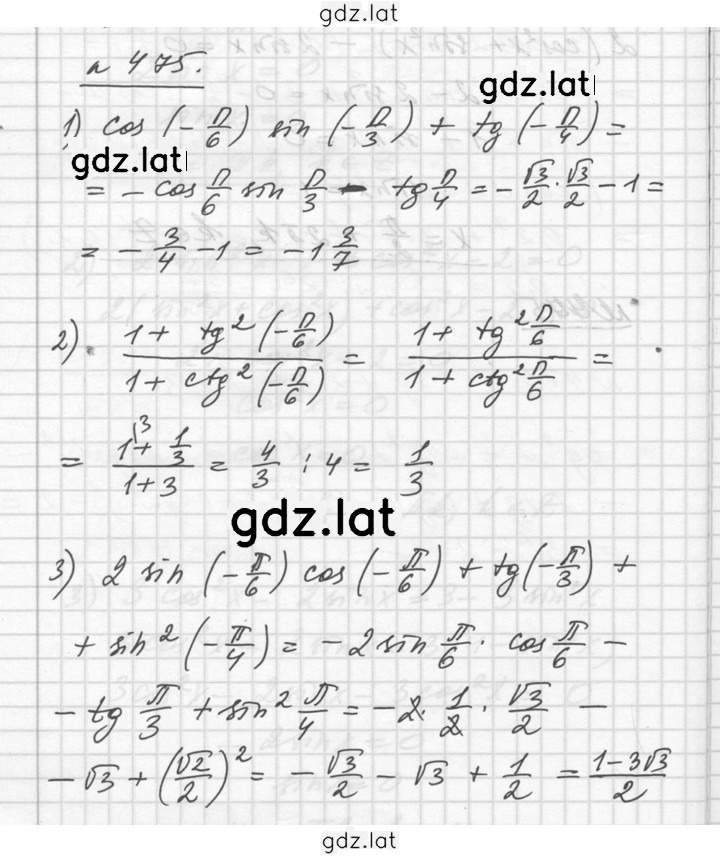 gdz.lat
№ 475.
gdz.lat
1) cos (-π/6) sin (-π/3) + tg (-π/4) =
gdz.lat
= - cos π/6 sin π/3 - tg π/4 = - √3/2 · √3/2 - 1 =
= - 3/4 - 1 = - 1 3/7
2) (1 + tg² (-π/6)) / (1 + ctg² (-π/6)) = (1 + tg² π/6) / (1 + ctg² π/6) =
= (1\3 + 1/3) / (1 + 3) = 4/3 : 4 = 1/3
gdz.lat
3) 2 sin (-π/6) cos (-π/6) + tg (-π/3) +
+ sin² (-π/4) = - 2 sin π/6 · cos π/6 -
- tg π/3 + sin² π/4 = - 2 · 1/2 · √3/2 -
- √3 + (√2/2)² = - √3/2 - √3 + 1/2 = (1 - 3√3)/2
gdz.lat